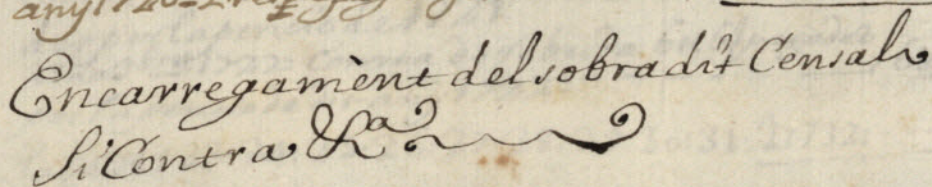 any 1720
Encarregamènt del sobradit Censal
Si Contra &ª